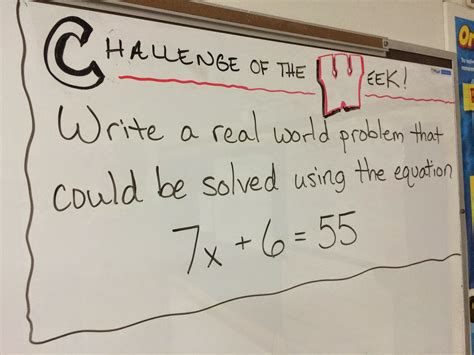 CHALLENGE OF THE WEEK!
Write a real world problem that
could be solved using the equation
7x + 6 = 55